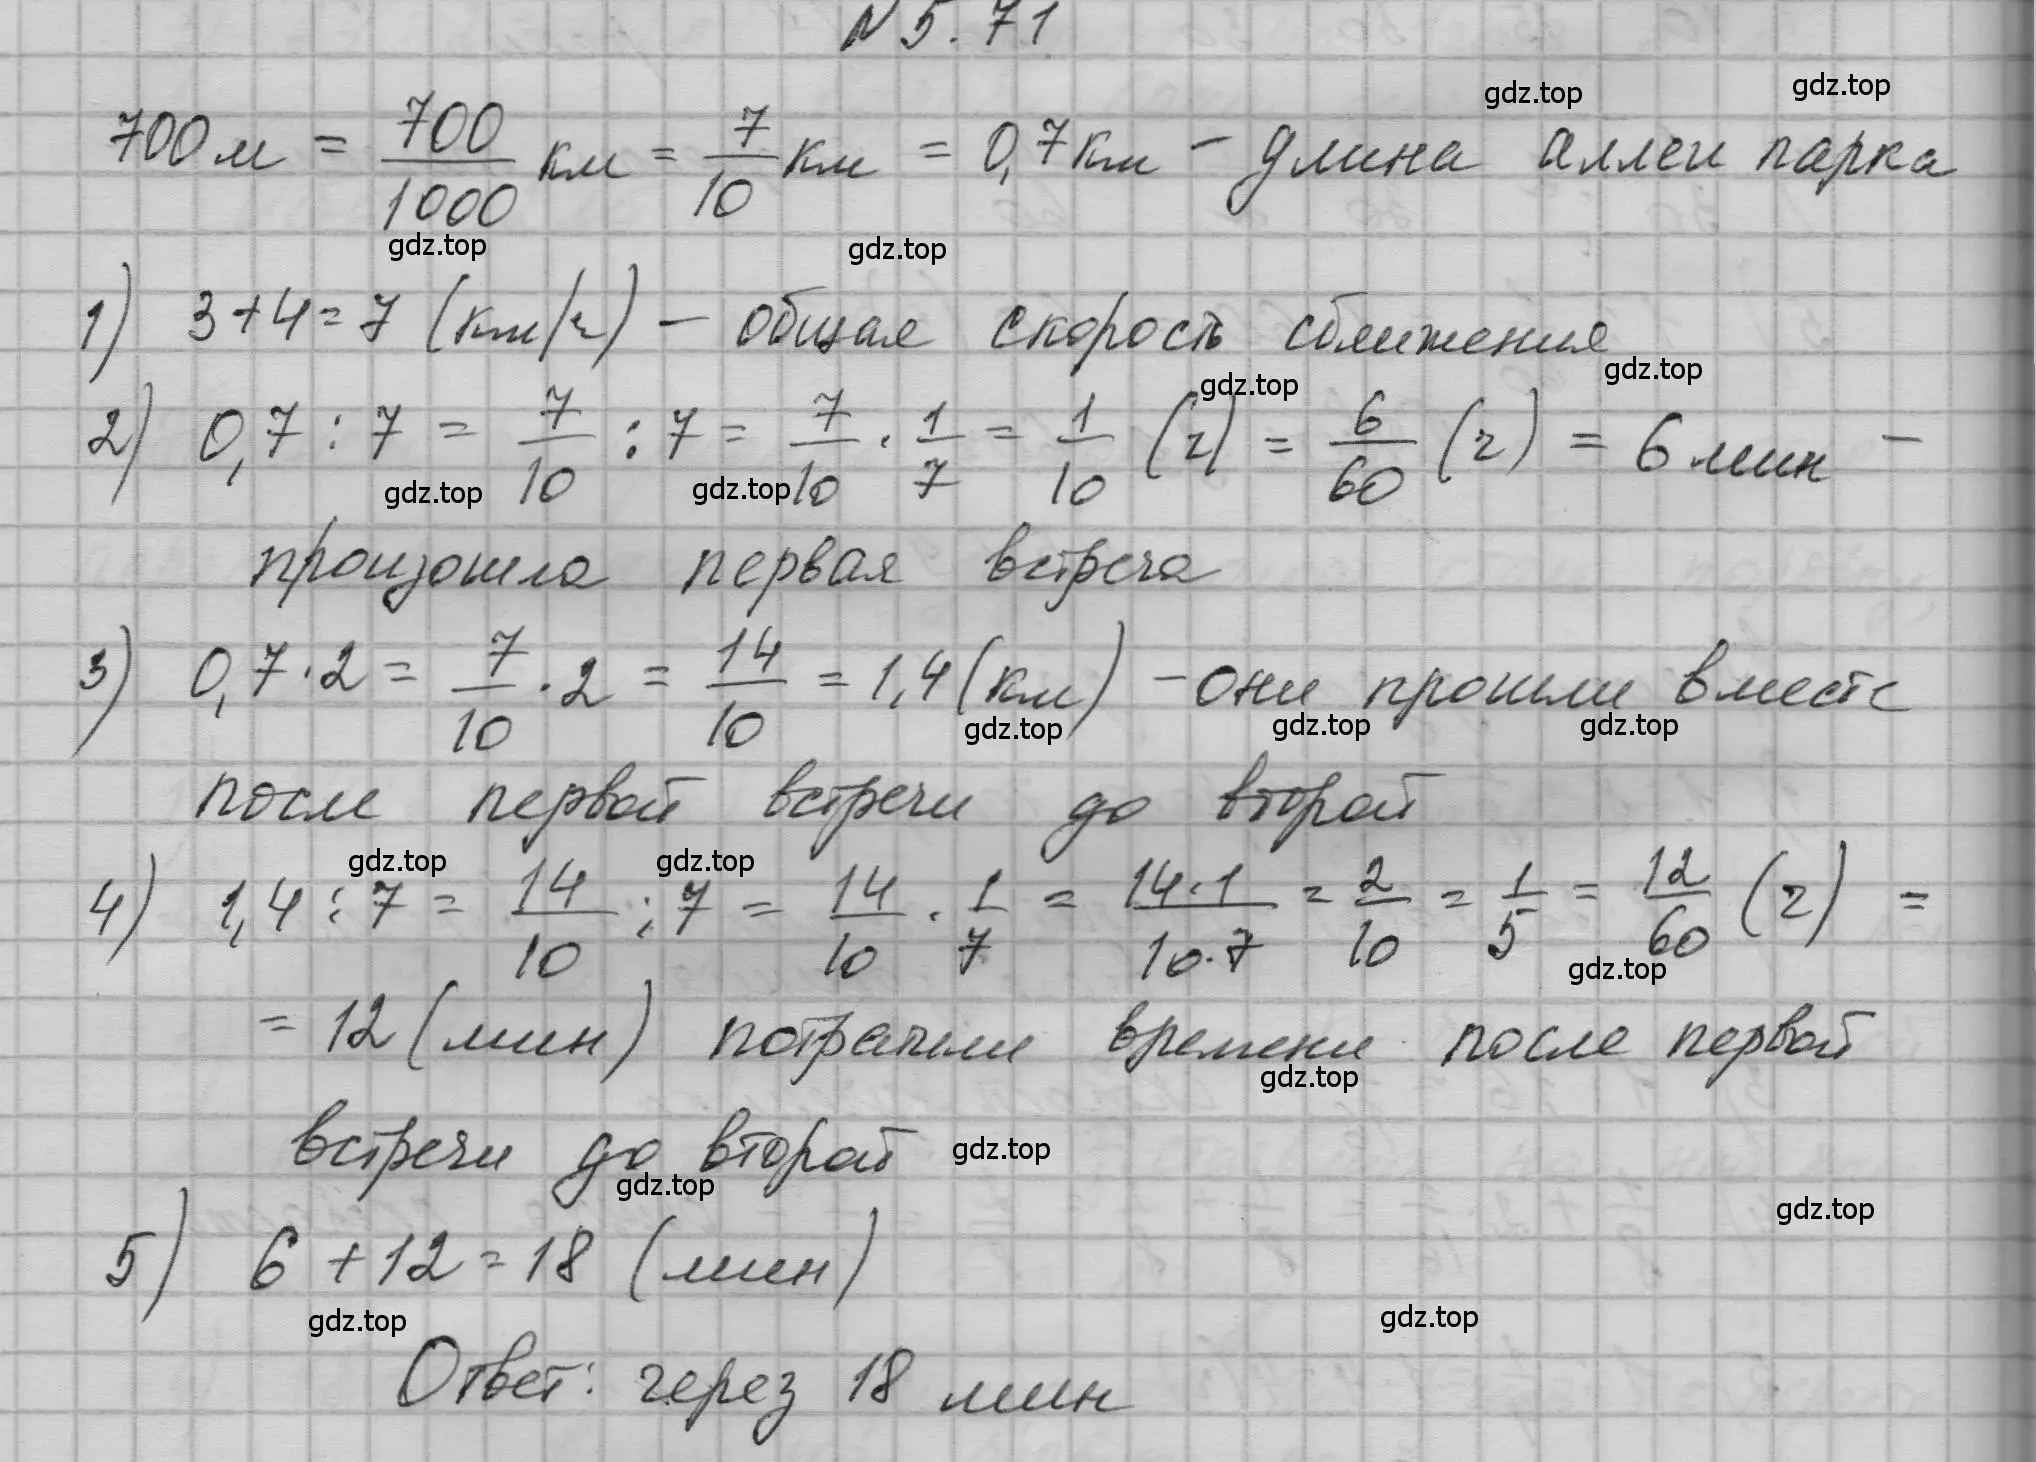 N 5.71
gdz.top gdz.top
700 м = 700/1000 км = 7/10 км = 0,7 км – длина аллеи парка
gdz.top gdz.top
1) 3+4=7 (км/ч) – общая скорость сближения
gdz.top gdz.top
2) 0,7 : 7 = 7/10 : 7 = 7/10 · 1/7 = 1/10 (ч) = 6/60 (ч) = 6 мин –
gdz.top gdz.top
произошла первая встреча
3) 0,7·2 = 7/10 · 2 = 14/10 = 1,4 (км) – они прошли вместе
gdz.top gdz.top gdz.top
после первой встречи до второй
gdz.top gdz.top
4) 1,4 : 7 = 14/10 : 7 = 14/10 · 1/7 = 14·1/10·7 = 2/10 = 1/5 = 12/60 (ч) =
gdz.top
= 12 (мин) потратили времени после первой
gdz.top
встречи до второй gdz.top
gdz.top gdz.top
5) 6 + 12 = 18 (мин)
gdz.top gdz.top
Ответ: через 18 мин